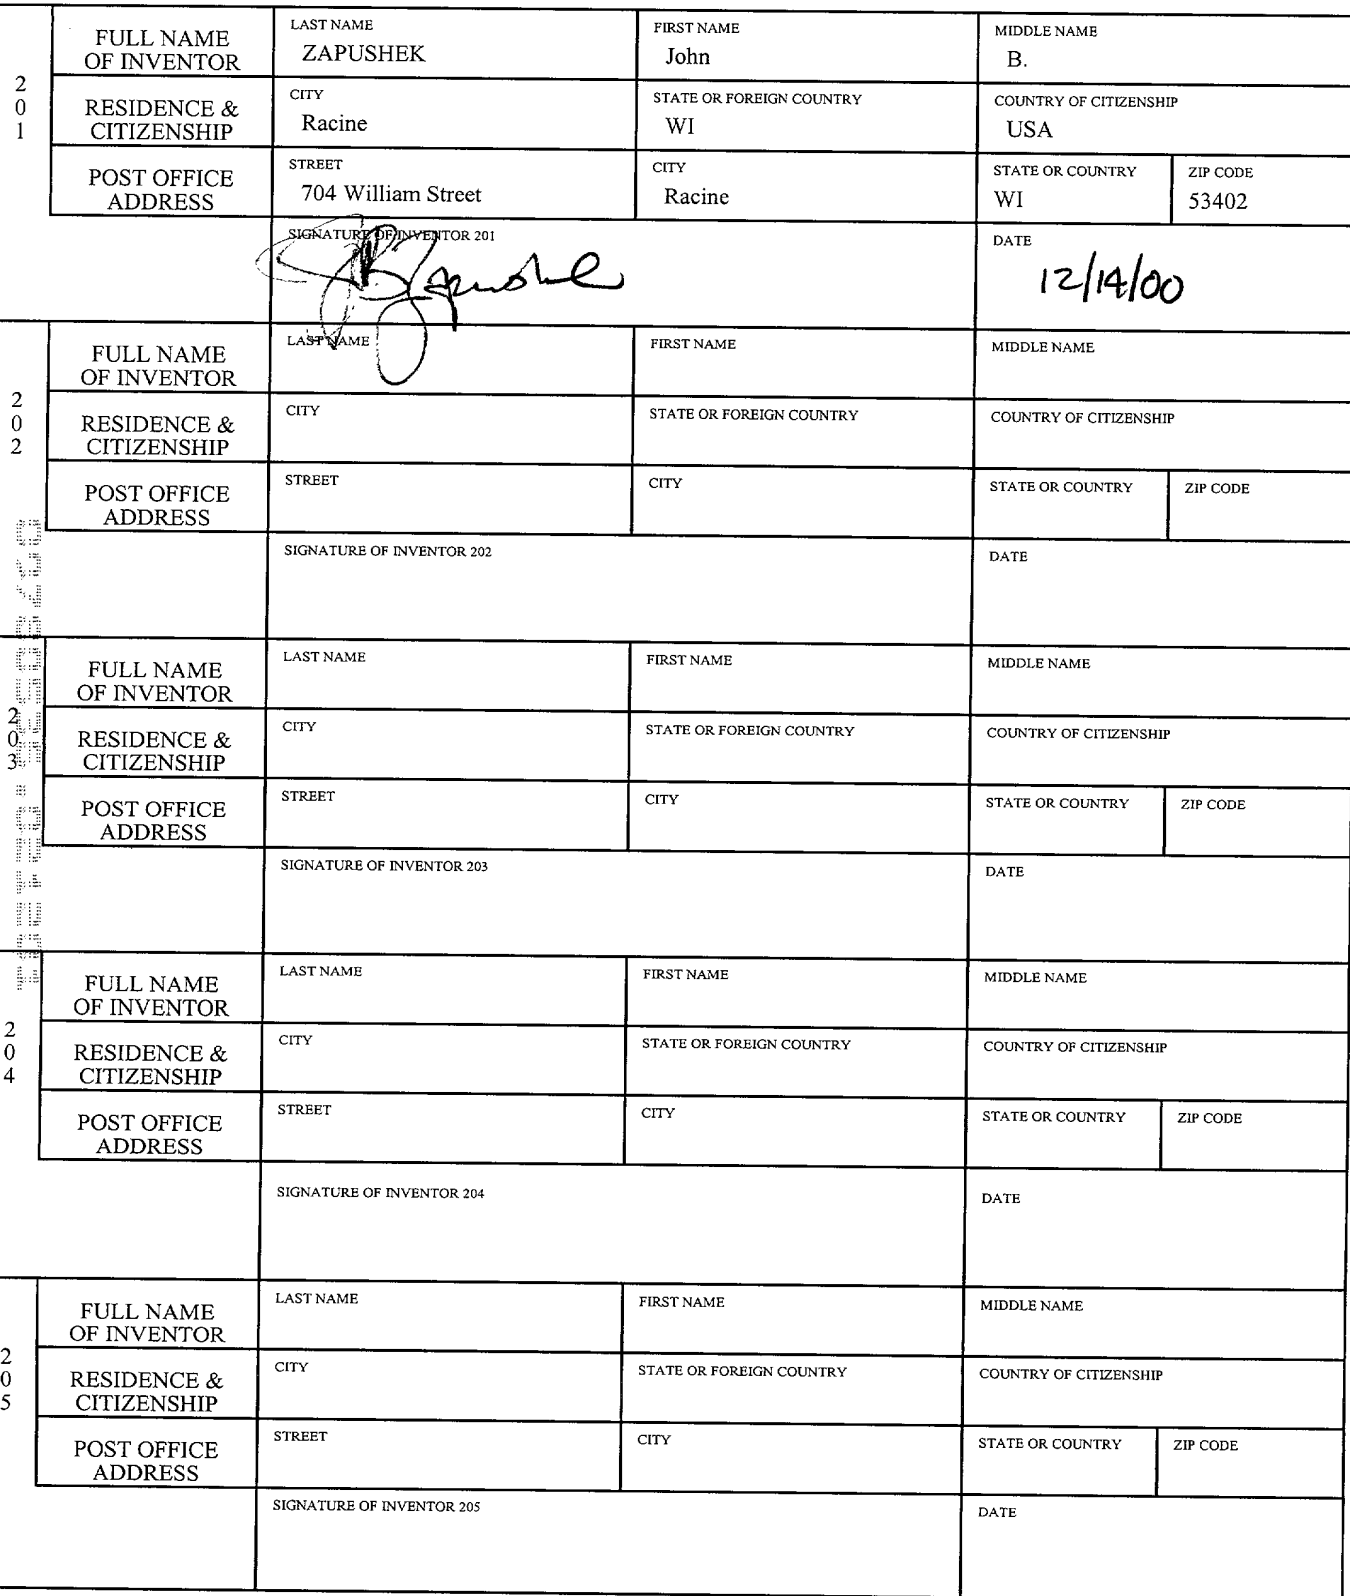 FULL NAME OF INVENTOR
LAST NAME
ZAPUSHEK
FIRST NAME
John
MIDDLE NAME
B.
201
RESIDENCE & CITIZENSHIP
CITY
Racine
STATE OR FOREIGN COUNTRY
WI
COUNTRY OF CITIZENSHIP
USA
POST OFFICE ADDRESS
STREET
704 William Street
CITY
Racine
STATE OR COUNTRY
WI
ZIP CODE
53402
SIGNATURE OF INVENTOR 201
DATE
12/14/00
FULL NAME OF INVENTOR
LAST NAME
FIRST NAME
MIDDLE NAME
202
RESIDENCE & CITIZENSHIP
CITY
STATE OR FOREIGN COUNTRY
COUNTRY OF CITIZENSHIP
POST OFFICE ADDRESS
STREET
CITY
STATE OR COUNTRY
ZIP CODE
SIGNATURE OF INVENTOR 202
DATE
FULL NAME OF INVENTOR
LAST NAME
FIRST NAME
MIDDLE NAME
203
RESIDENCE & CITIZENSHIP
CITY
STATE OR FOREIGN COUNTRY
COUNTRY OF CITIZENSHIP
POST OFFICE ADDRESS
STREET
CITY
STATE OR COUNTRY
ZIP CODE
SIGNATURE OF INVENTOR 203
DATE
FULL NAME OF INVENTOR
LAST NAME
FIRST NAME
MIDDLE NAME
204
RESIDENCE & CITIZENSHIP
CITY
STATE OR FOREIGN COUNTRY
COUNTRY OF CITIZENSHIP
POST OFFICE ADDRESS
STREET
CITY
STATE OR COUNTRY
ZIP CODE
SIGNATURE OF INVENTOR 204
DATE
FULL NAME OF INVENTOR
LAST NAME
FIRST NAME
MIDDLE NAME
205
RESIDENCE & CITIZENSHIP
CITY
STATE OR FOREIGN COUNTRY
COUNTRY OF CITIZENSHIP
POST OFFICE ADDRESS
STREET
CITY
STATE OR COUNTRY
ZIP CODE
SIGNATURE OF INVENTOR 205
DATE